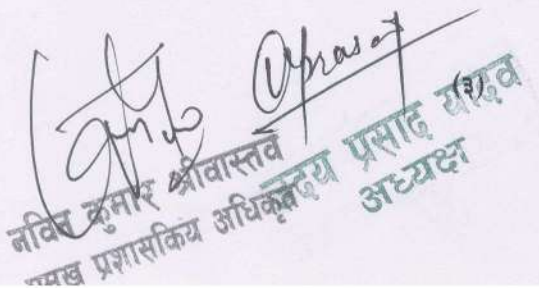 (३)
Uprasad
नविन कुमार श्रीवास्तव
प्रमुख प्रशासकिय अधिकृत
उदय प्रसाद यादव
अध्यक्ष